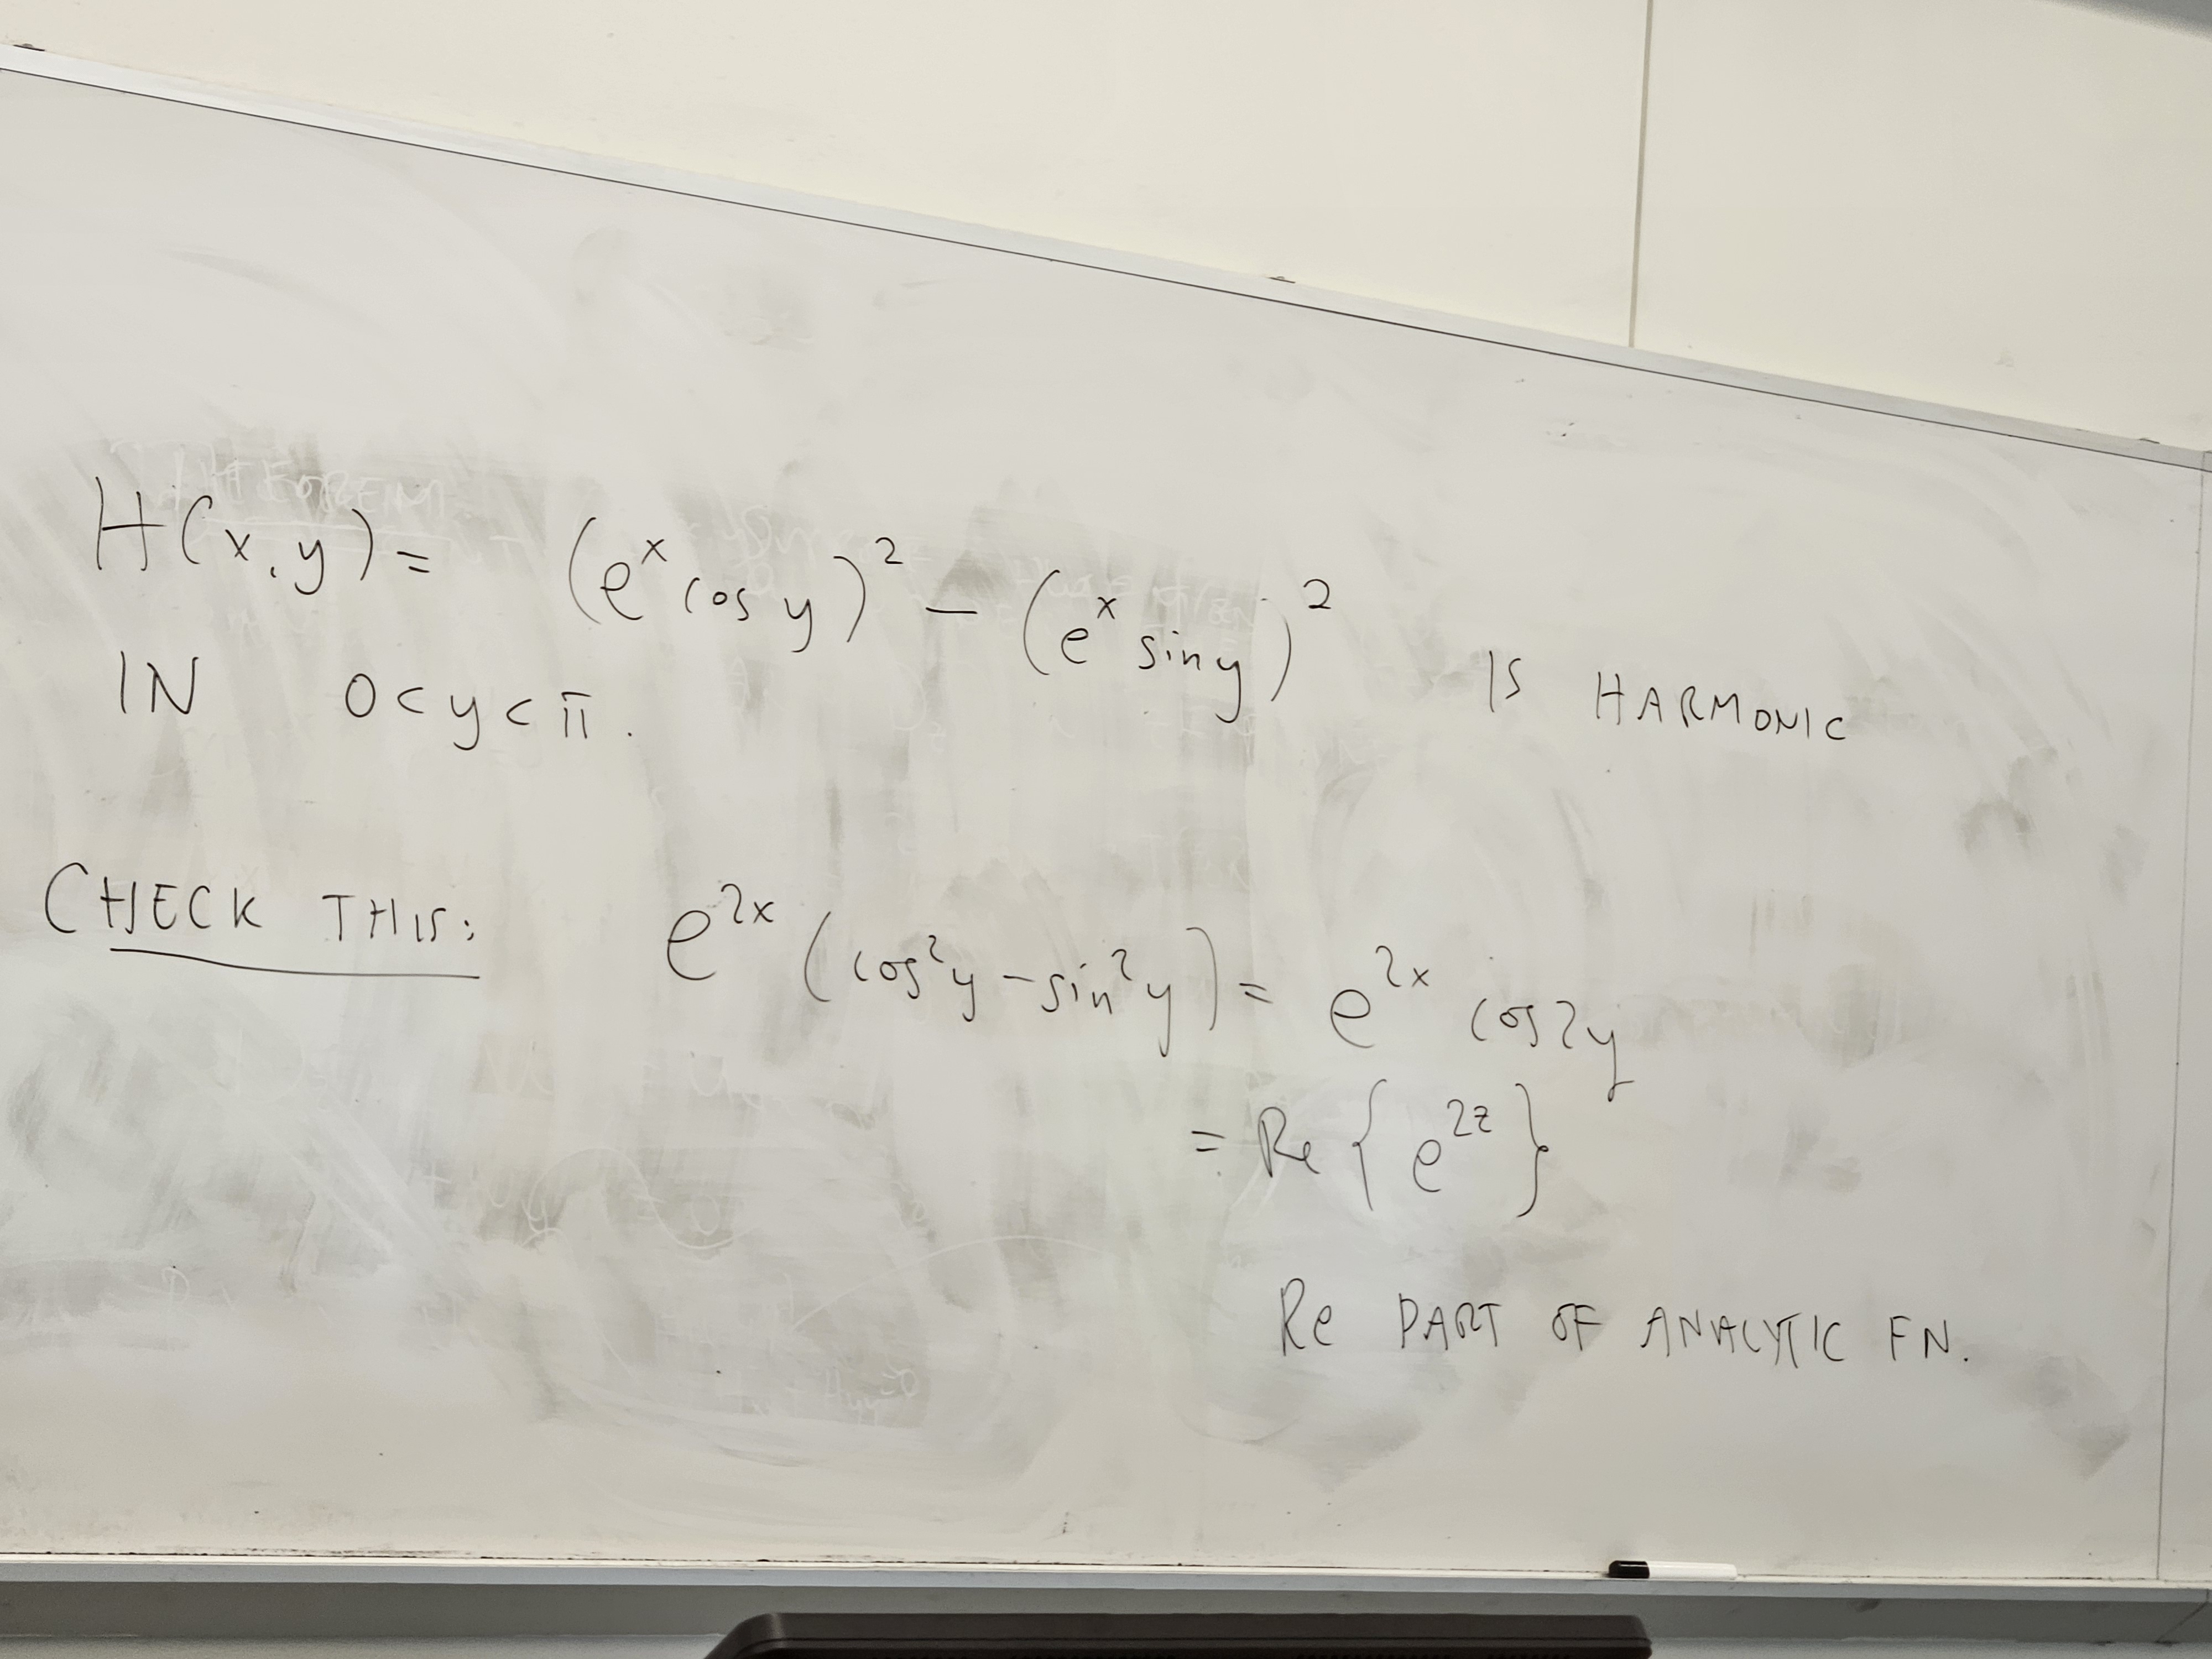 H(x,y) = (e^x cos y)^2 - (e^x sin y)^2 IS HARMONIC
IN 0<y<π.
CHECK THIS: e^{2x} (cos^2 y - sin^2 y) = e^{2x} cos 2y
= Re { e^{2z} }
Re PART OF ANALYTIC FN.
THEOREM